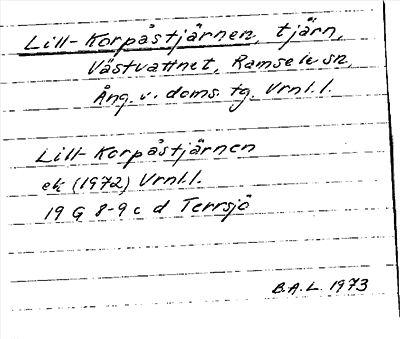 Lill-Korpåstjärnen, tjärn,
Västvattnet, Ramsele sn,
Ång. v. doms. tg. Vrnl.l.
Lill-Korpåstjärnen
ek (1972) Vrnl.l.
19 G 8-9 c d Terrsjö
B.A.L. 1973